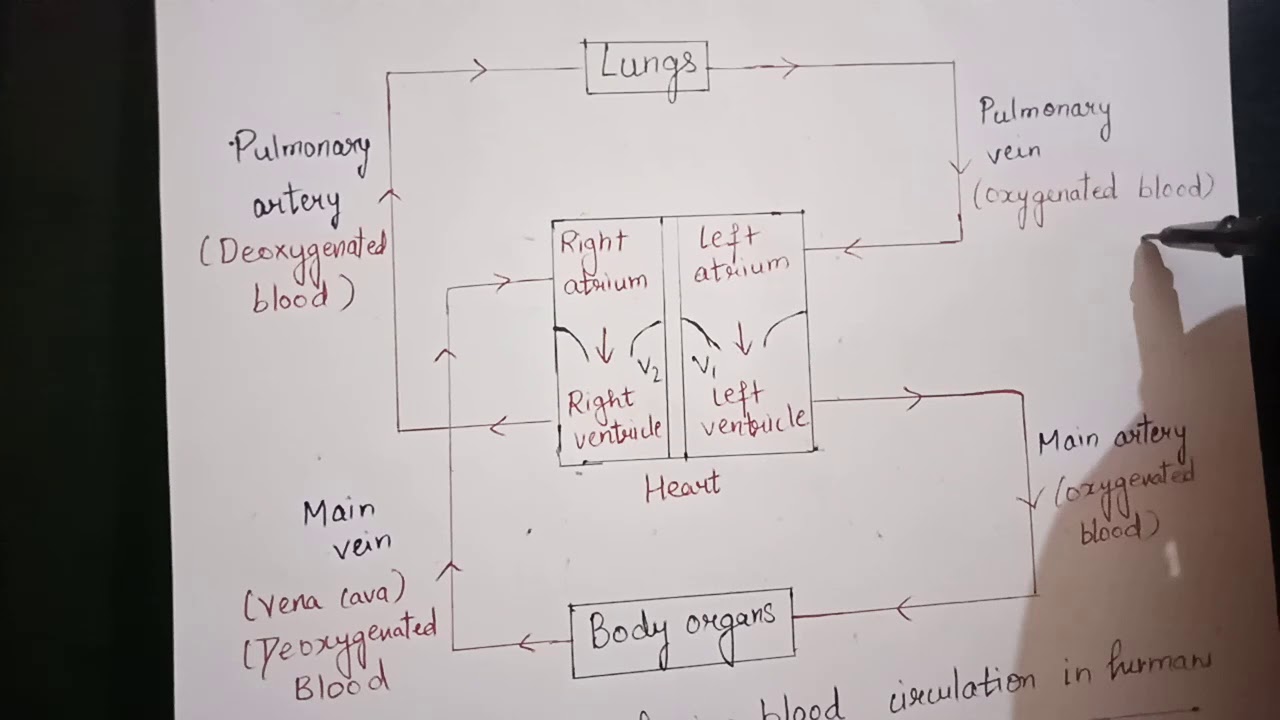 Lungs
Pulmonary
artery
(Deoxygenated
blood)
Pulmonary
vein
(oxygenated blood)
Right
atrium
Left
atrium
V2
V1
Right
ventricle
Left
ventricle
Heart
Main artery
(oxygenated
blood)
Main
vein
(vena cava)
(Deoxygenated
Blood
Body organs
blood circulation in humans